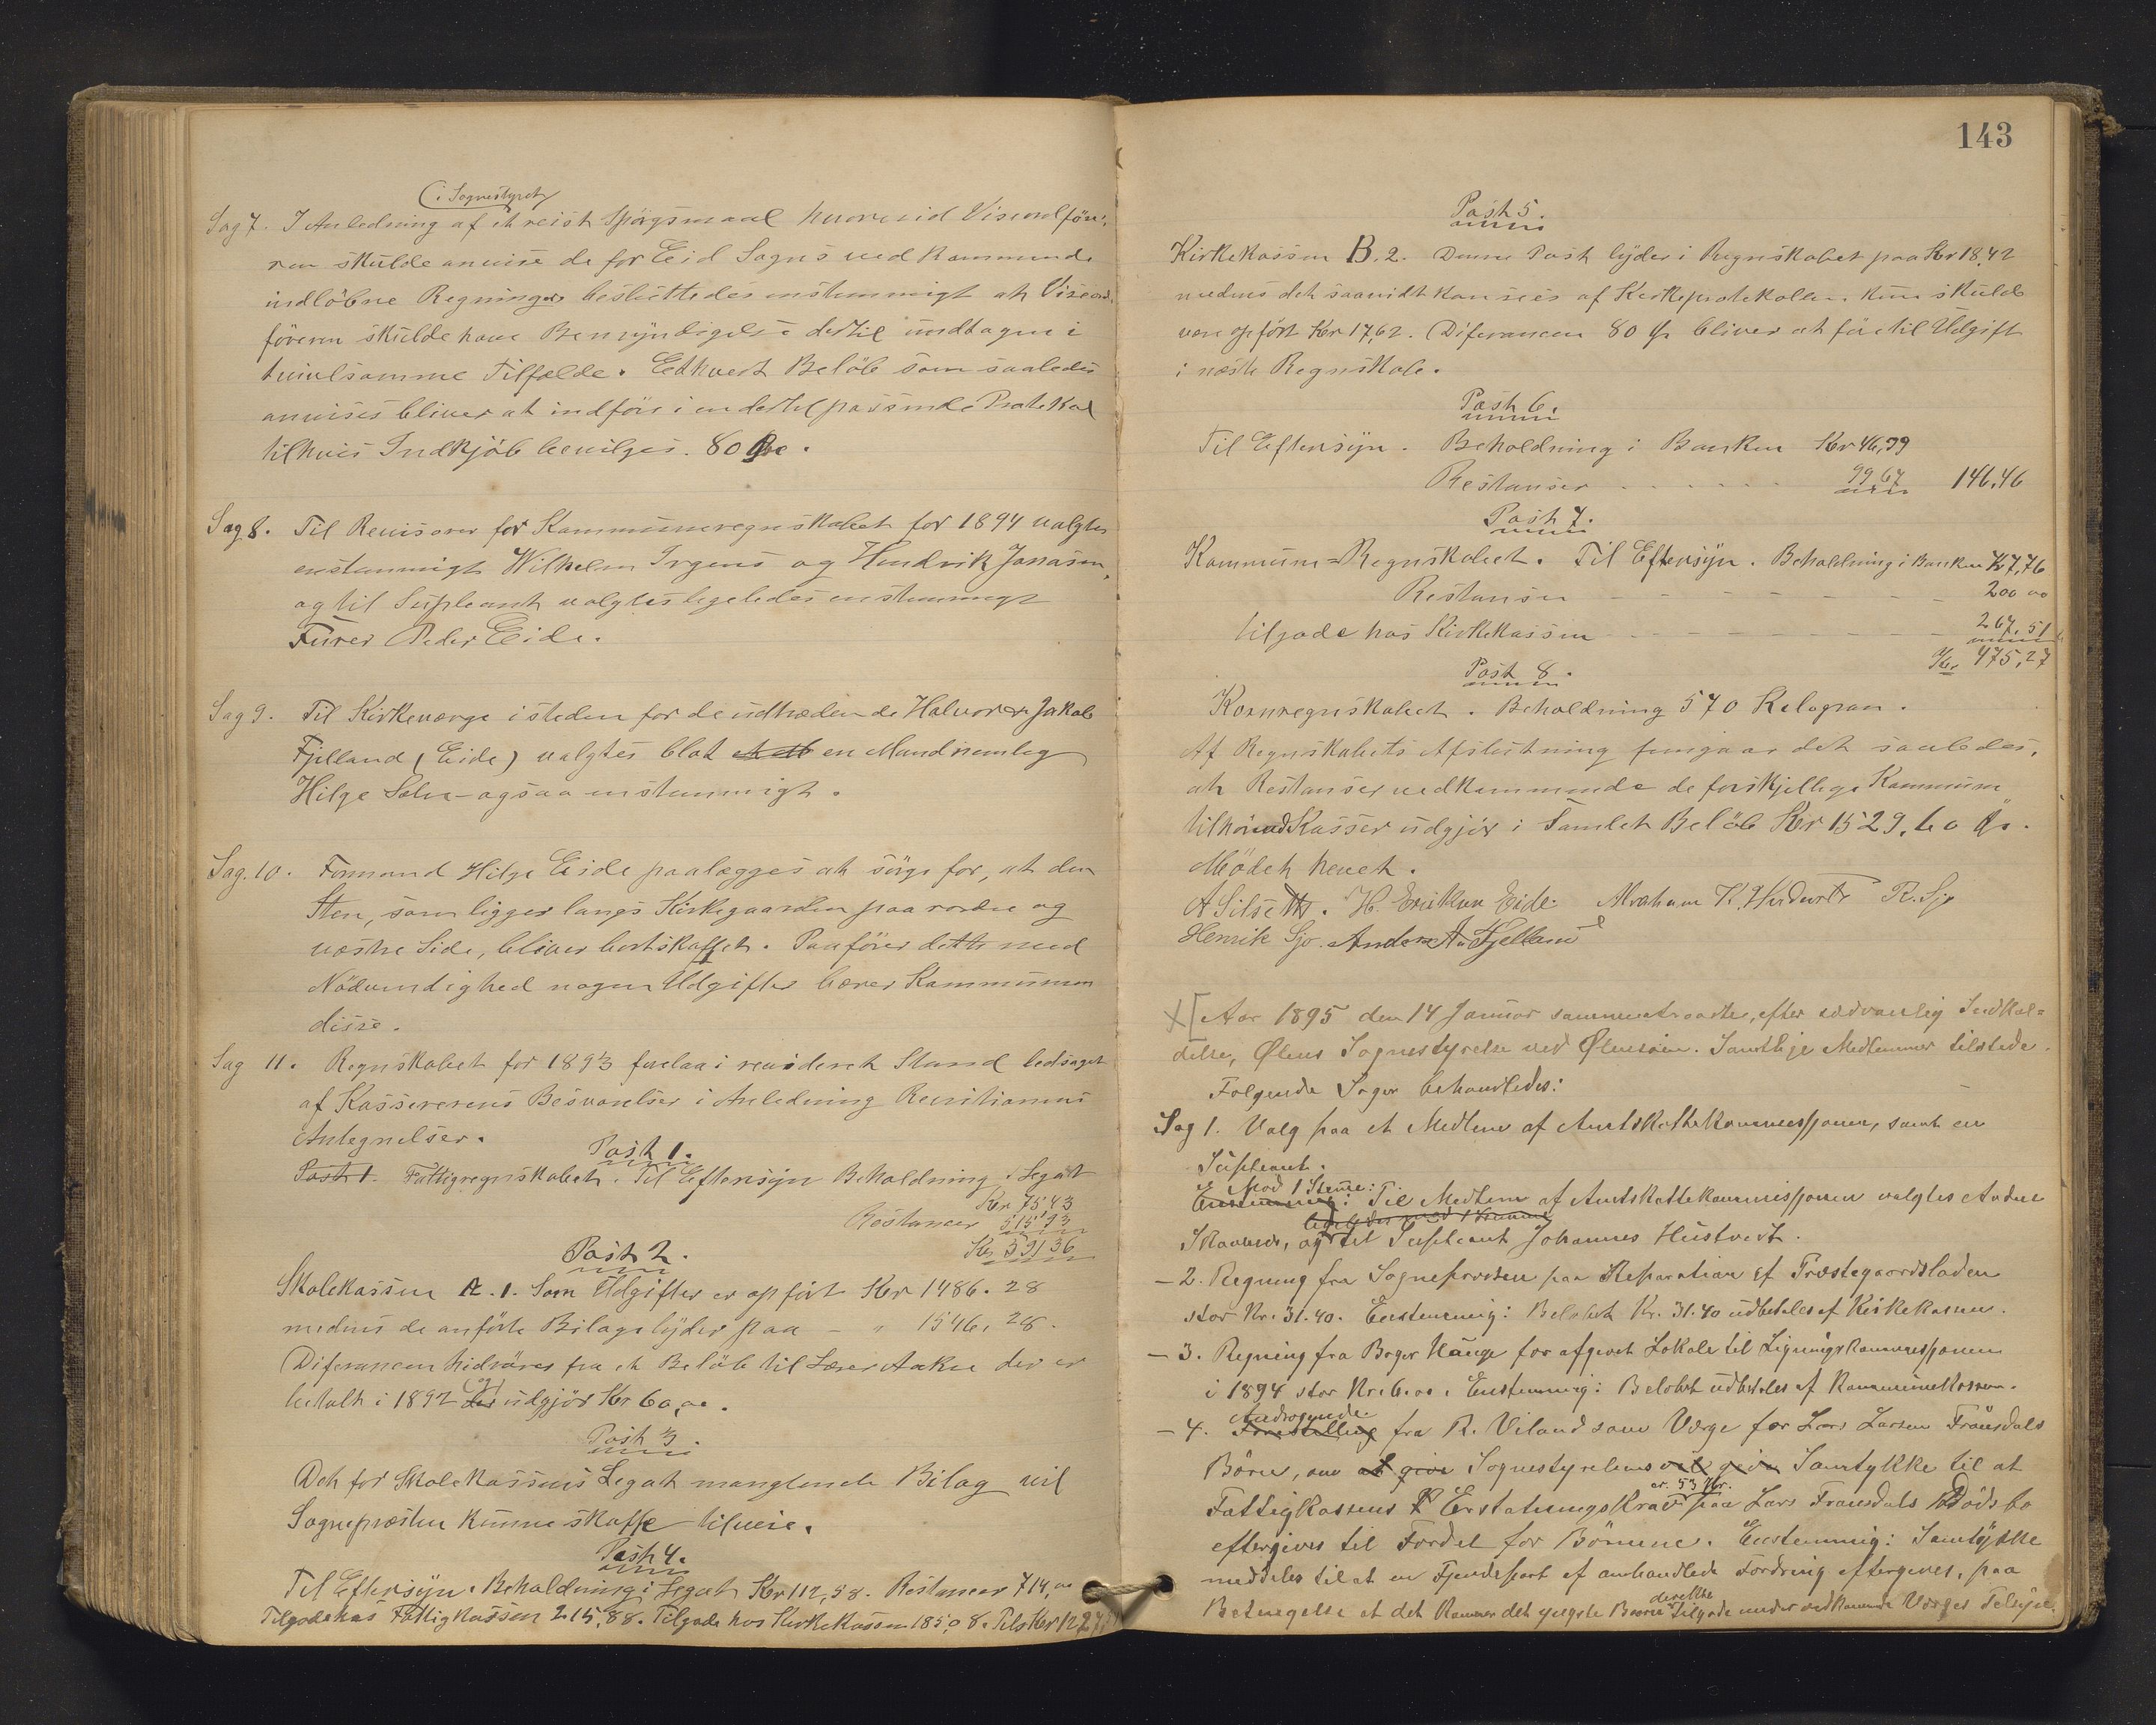 (i Sognestyret)
Sag 7. I Anledning af et reist Spögsmaal hvorvid Viseordför-
ren skulde anvise de for Eid Sogns vedkommende
indløbne Regninger besluttedes enstemmigt at Viseord-
föreren skulde have Bemyndigelse dertil undtagen i
tvivlsomme Tilfælde. Ethvert Beløb som saaledes
anvises bliver at indføres i en dertil passende Protokol
tilhvis Indkjöb bevilges. 80 Øre.
Sag 8. Til Revisorer for Kommuneregnskabet for 1894 valgtes
enstemmigt Wilhelm Irgens og Hendrik Jonasen,
og til Supleant valgtes ligeledes enstemmigt
Furer Peder Eide.
Sag 9. Til Kirkeværge isteden for de udtrædende Halvor & Jakob
Fjelland (Eide) valgtes blot en Mand nemlig
Hilge Sølve - ogsaa enstemmigt.
Sag. 10. Formand Hilge Eide paalægges at sörge for, at den
Sten, som ligger langs Kirkegaarden paa nordre og
væstre Side, bliver bortskaffet. Paaförer dette med
Nödvendighed nogen Udgifter bærer Kommunen
disse.
Sag 11. Regnskabet for 1893 forelaa i revideret Stand ledsaget
af Kassererens Besvarelser i Anledning Revisionens
Antegnelser.
Post 1.
Post 1. Fattigregnskabet. Til Eftersyn Beholdning i Legat
Kr 75 43
Restancer 515 93
Kr 591 36
Post 2.
Skolekassen A. 1. Som Udgifter er opfört Kr 1486. 28
medens de anförte Bilage lyder paa - " 1546, 28.
Diferancen hidrörer fra et Belöb til Lærer Aakre der er
betalt i 1892 og udgjör Kr 60,00.
Post 3.
Det for Skolekassens Legat manglende Bilag vil
Sognepræsten kunne skaffe tilveie.
Post 4.
Til Eftersyn. Beholdning i Legat Kr 112,58. Restancer 714,00
Tilgode hos Fattigkassen 215,88. Tilgode hos Kirkekassen 185,08.
143
Post 5.
Kirkekassen B. 2. Denne Post lyder i Regnskabet paa Kr 18,42
medens det saavidt kan sees af Kirkeprotokollen kun skulde
være opfört Kr 17,62. Diferancen 80 Ör bliver at före til Udgift
i næste Regnskab.
Post 6.
Til Eftersyn. Beholdning i Banken Kr 46,79
Restanser - - - - - - 99 67 146,46
Post 7.
Kommune=Regnskabet. Til Eftersyn. Beholdning i Banken Kr 7,76
Restanser - - - - - - - - 200 00
tilgode hos Kirkekassen - - - - - - - 267,51
Kr 475,27
Post 8.
Kornregnskabet. Beholdning 570 Kilogram.
Af Regnskabets Afslutning fremgaar det saaledes,
at Restanser vedkommende de forskjellige Kommune
tilhörende Kasser udgjör i Samlet Belöb Kr 1529,60 Ör.
Mödet hevet.
A Silseth. H. Eriksen Eide. Abraham K. Hustvedt R. Sjo
Henrik Sjo. Anders A. Fjelland
X[ Aar 1895 den 14 Januar sammentraadte, efter sædvanlig Indkal=
delse, Ølens Sognestyrelse ved Ølensøen. Samtlige Medlemmer tilstede.
Følgende Sager behandledes:
Sag 1. Valg paa et Medlem af Amtskattekommissjonen, samt en
Supleant.
Mod 1 Stemme:
Enstemmig: Til Medlem af Amtskattekommissjonen valgtes Andne
ligeledes mod 1 Stemme
Skaanevik, og til Supleant Johannes Hustvedt.
- 2. Regning fra Sogneprresten paa Reparation af Præstegaardsladen
stor Kr. 31.40. Enstemmig: Beløbet Kr. 31.40 udbetales af Kirkekassen.
- 3. Regning fra Birger Hauge for afgivet Lokale til Ligningskommissjonen
i 1894 stor Kr. 6.00. Enstemmig: Beløbet udbetales af Kommunekassen.
Andragende
- 4. Forestilling fra R. Viland som Værge for Lars Larsen Frønsdals
Børn, om at give Sognestyrelsens vil give Samtykke til at
er. 53 Kr.
Fattigkassens Erstatningskrav paa Lars Frønsdals Dødsbo
eftergives til Fordel for Børnene. Enstemmig: Samtykke
meddeles til at en Fjerdepart af omhandlede Fordring eftergives, paa
derefter
Betingelse at det kommer det yngste Barn tilgode under vedkommende Værges Tilsyn.